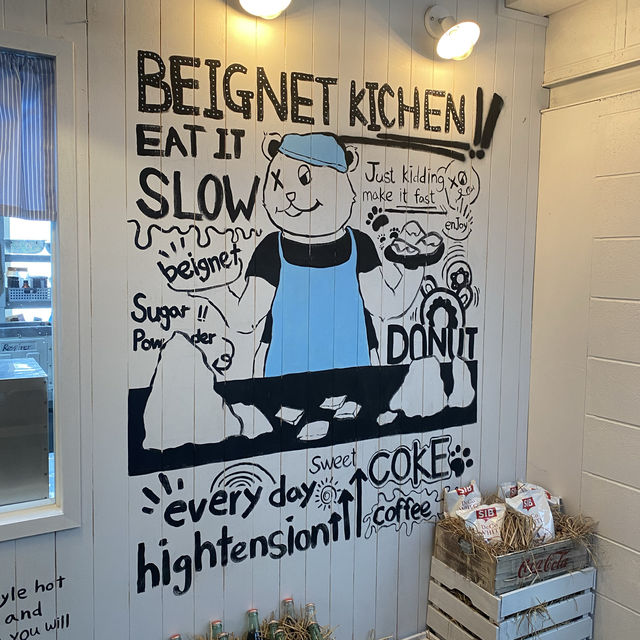 BEIGNET KICHEN!!
EAT IT
SLOW
Just kidding
make it fast
enjoy
beignet
Sugar !!
Powder
DONUT
Sweet
COKE
every day
coffee
hightension
yle hot
and
you will
SIB
SIB
Coca-Cola